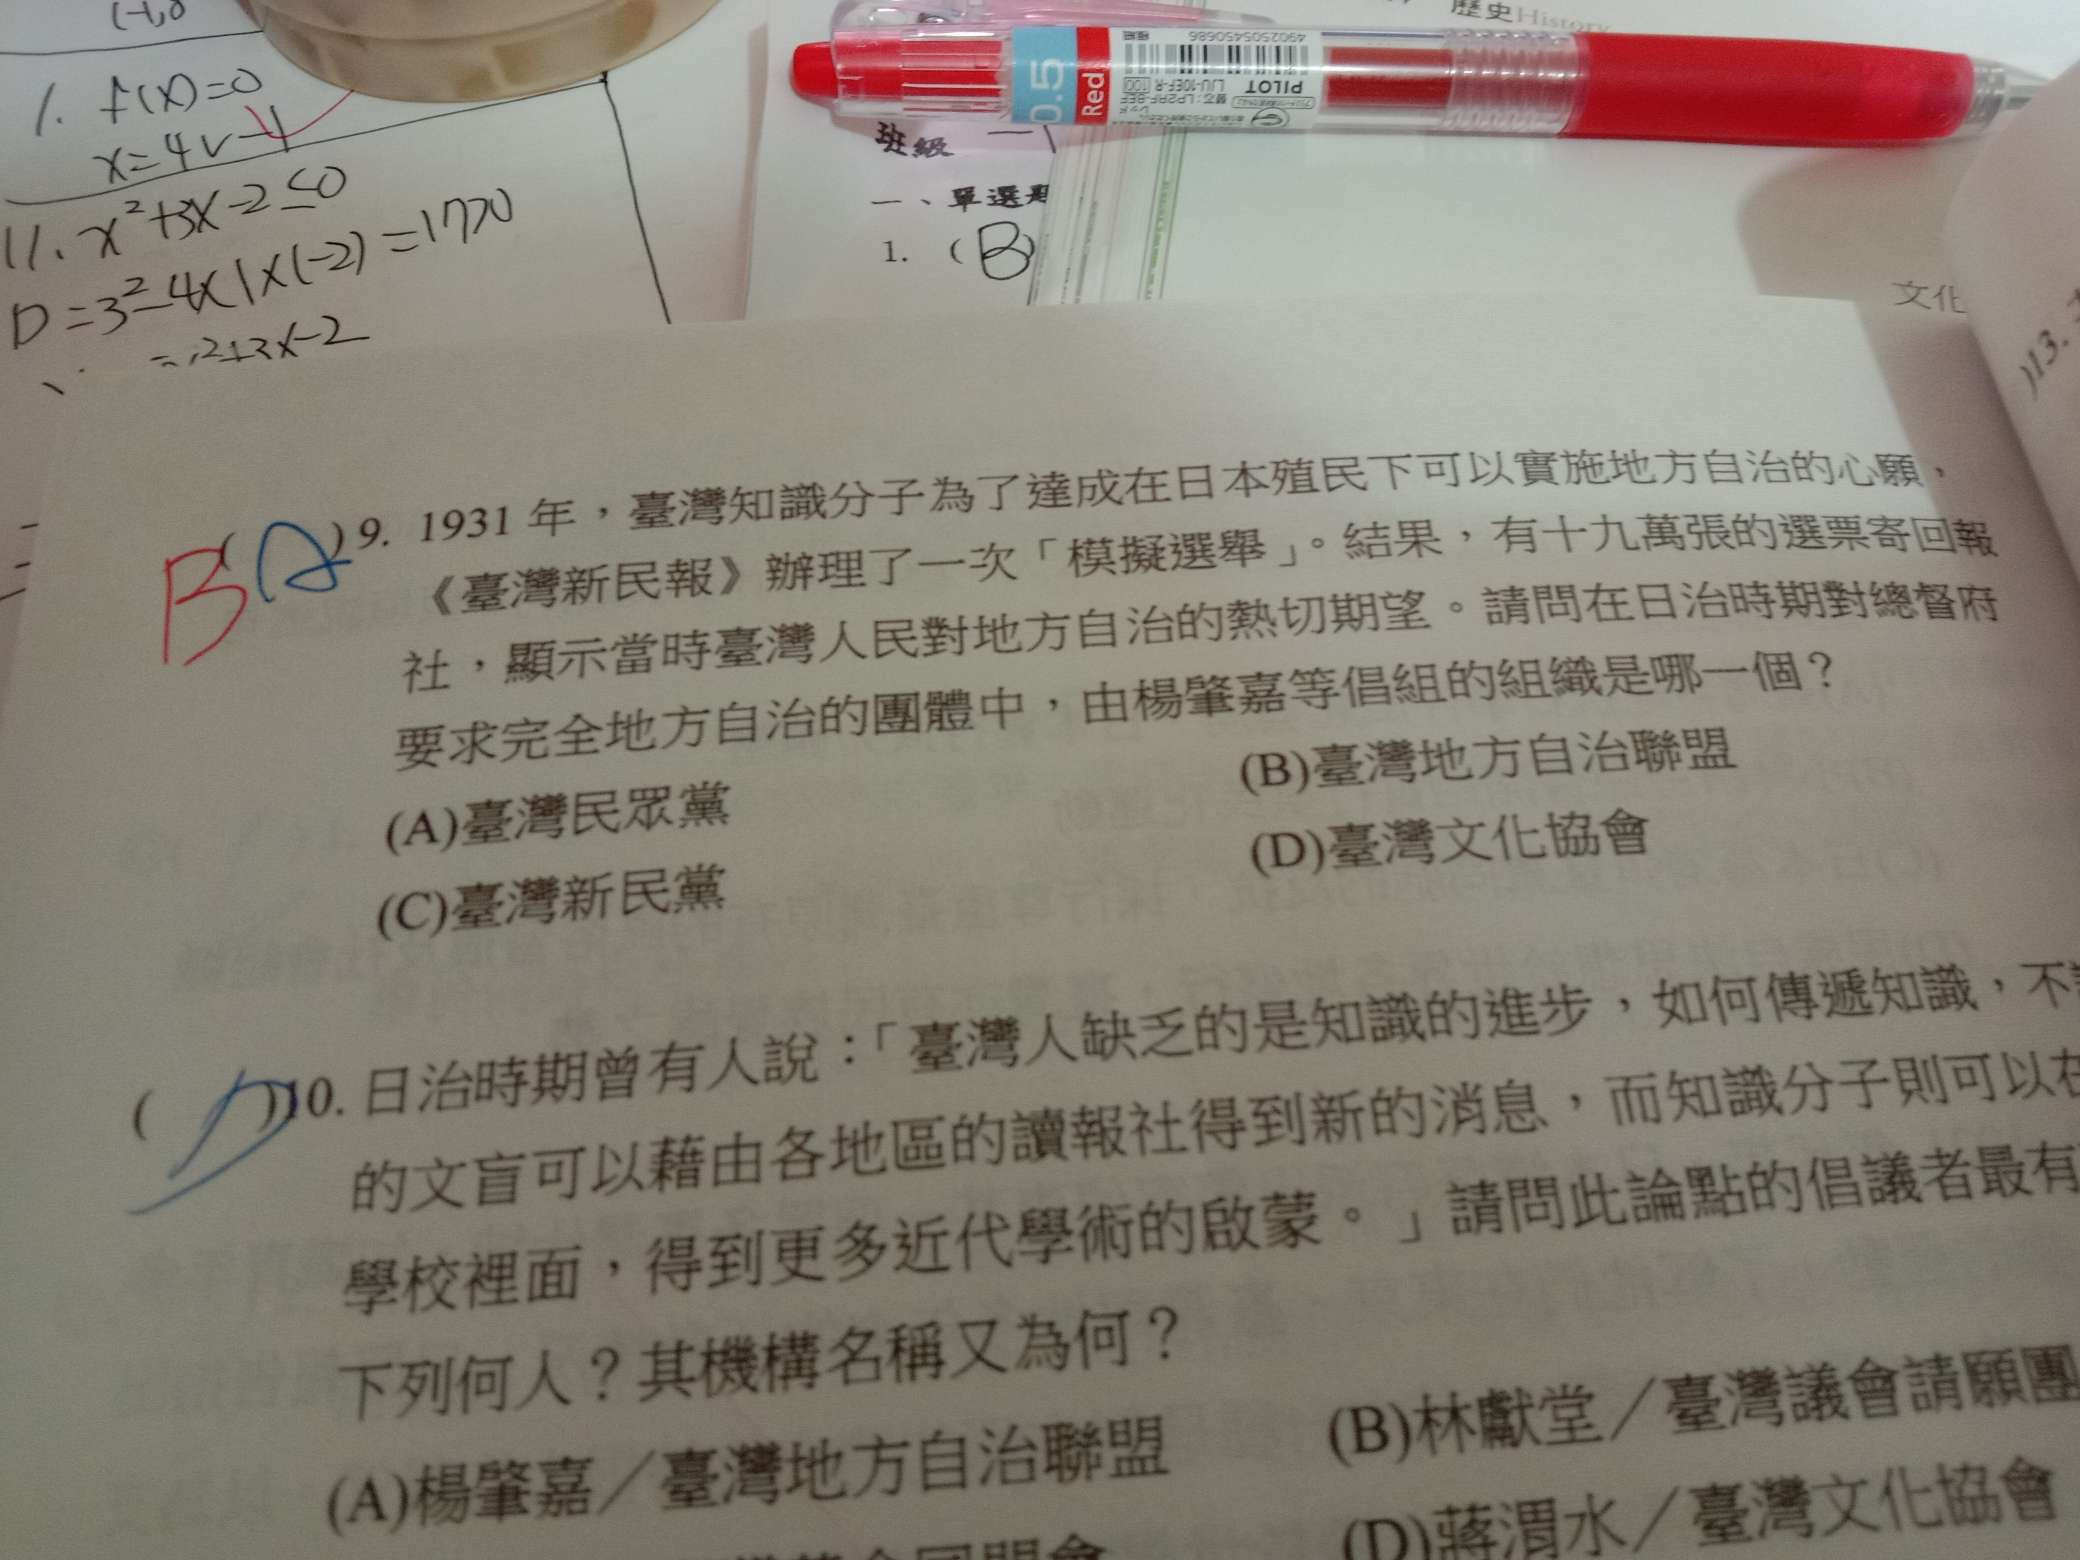 1. f(x)=0
x=4v-1
11. x²+3x-2≤0
D=3²-4×1×(-2)=17>0
歷史History
4902505450686
0.5
Red
PILOT
LJU-10EF-R
100
班級
一、單選
1. (B)
文化
)13.
B(A)9. 1931 年，臺灣知識分子為了達成在日本殖民下可以實施地方自治的心願，
《臺灣新民報》辦理了一次「模擬選舉」。結果，有十九萬張的選票寄回報
社，顯示當時臺灣人民對地方自治的熱切期望。請問在日治時期對總督府
要求完全地方自治的團體中，由楊肇嘉等倡組的組織是哪一個？
(A)臺灣民眾黨 (B)臺灣地方自治聯盟
(C)臺灣新民黨 (D)臺灣文化協會
(D)10. 日治時期曾有人說：「臺灣人缺乏的是知識的進步，如何傳遞知識，不
的文盲可以藉由各地區的讀報社得到新的消息，而知識分子則可以在
學校裡面，得到更多近代學術的啟蒙。」請問此論點的倡議者最有
下列何人？其機構名稱又為何？
(A)楊肇嘉／臺灣地方自治聯盟 (B)林獻堂／臺灣議會請願團
(D)蔣渭水／臺灣文化協會